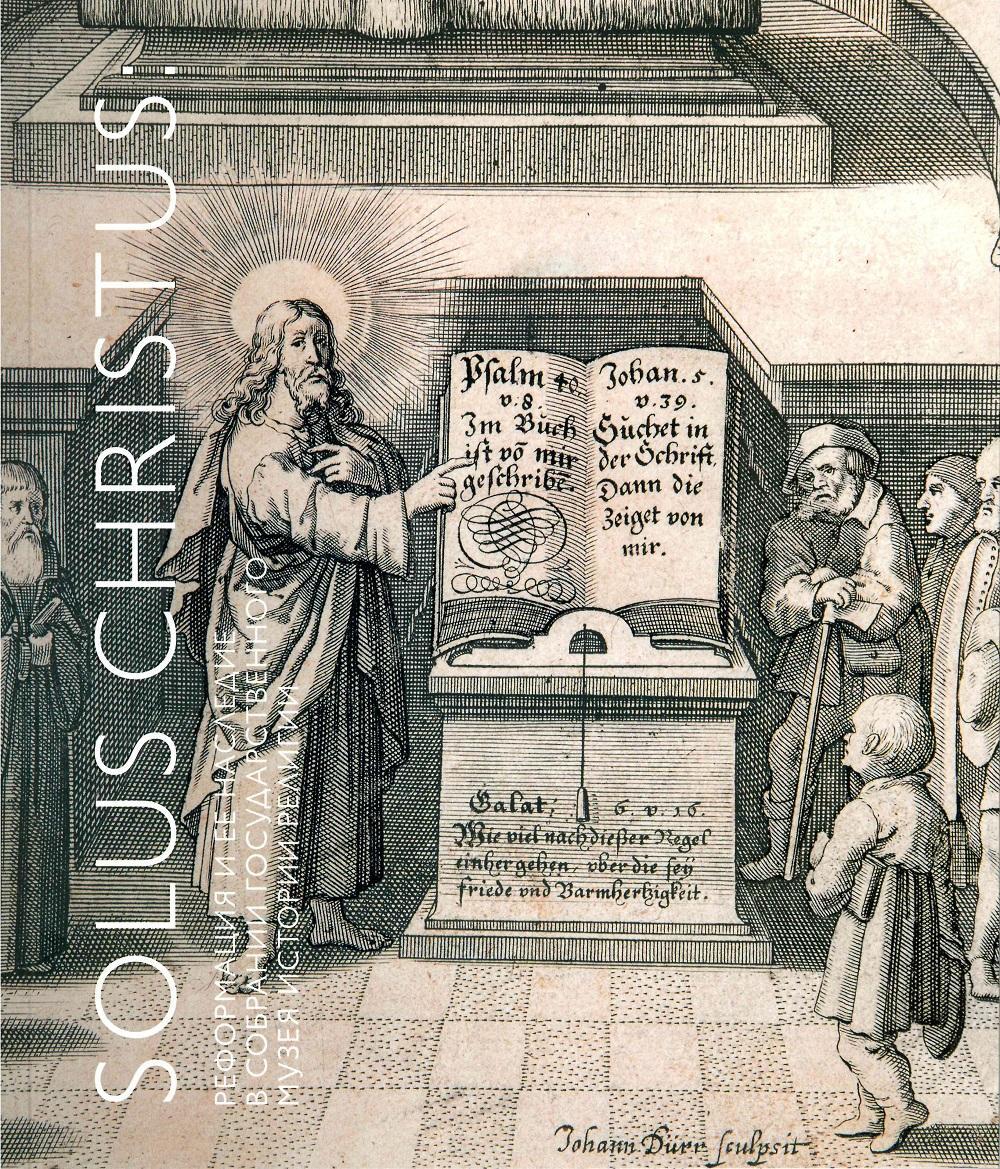 SOLUS CHRISTUS:
РЕФОРМАЦИЯ И ЕЕ НАСЛЕДИЕ
В СОБРАНИИ ГОСУДАРСТВЕННОГО
МУЗЕЯ ИСТОРИИ РЕЛИГИИ
Psalm 40.
v. 8.
Im Buch
ist võ mir
geschribẽ.
Johan. 5.
v. 39.
Suchet in
der Schrift.
Dann die
zeiget von
mir.
Galat; 6. v. 16.
Wie viel nach dießer Regel
einher gehen, vber die sey
friede vnd Barmhertzigkeit.
Johann Dürr sculpsit